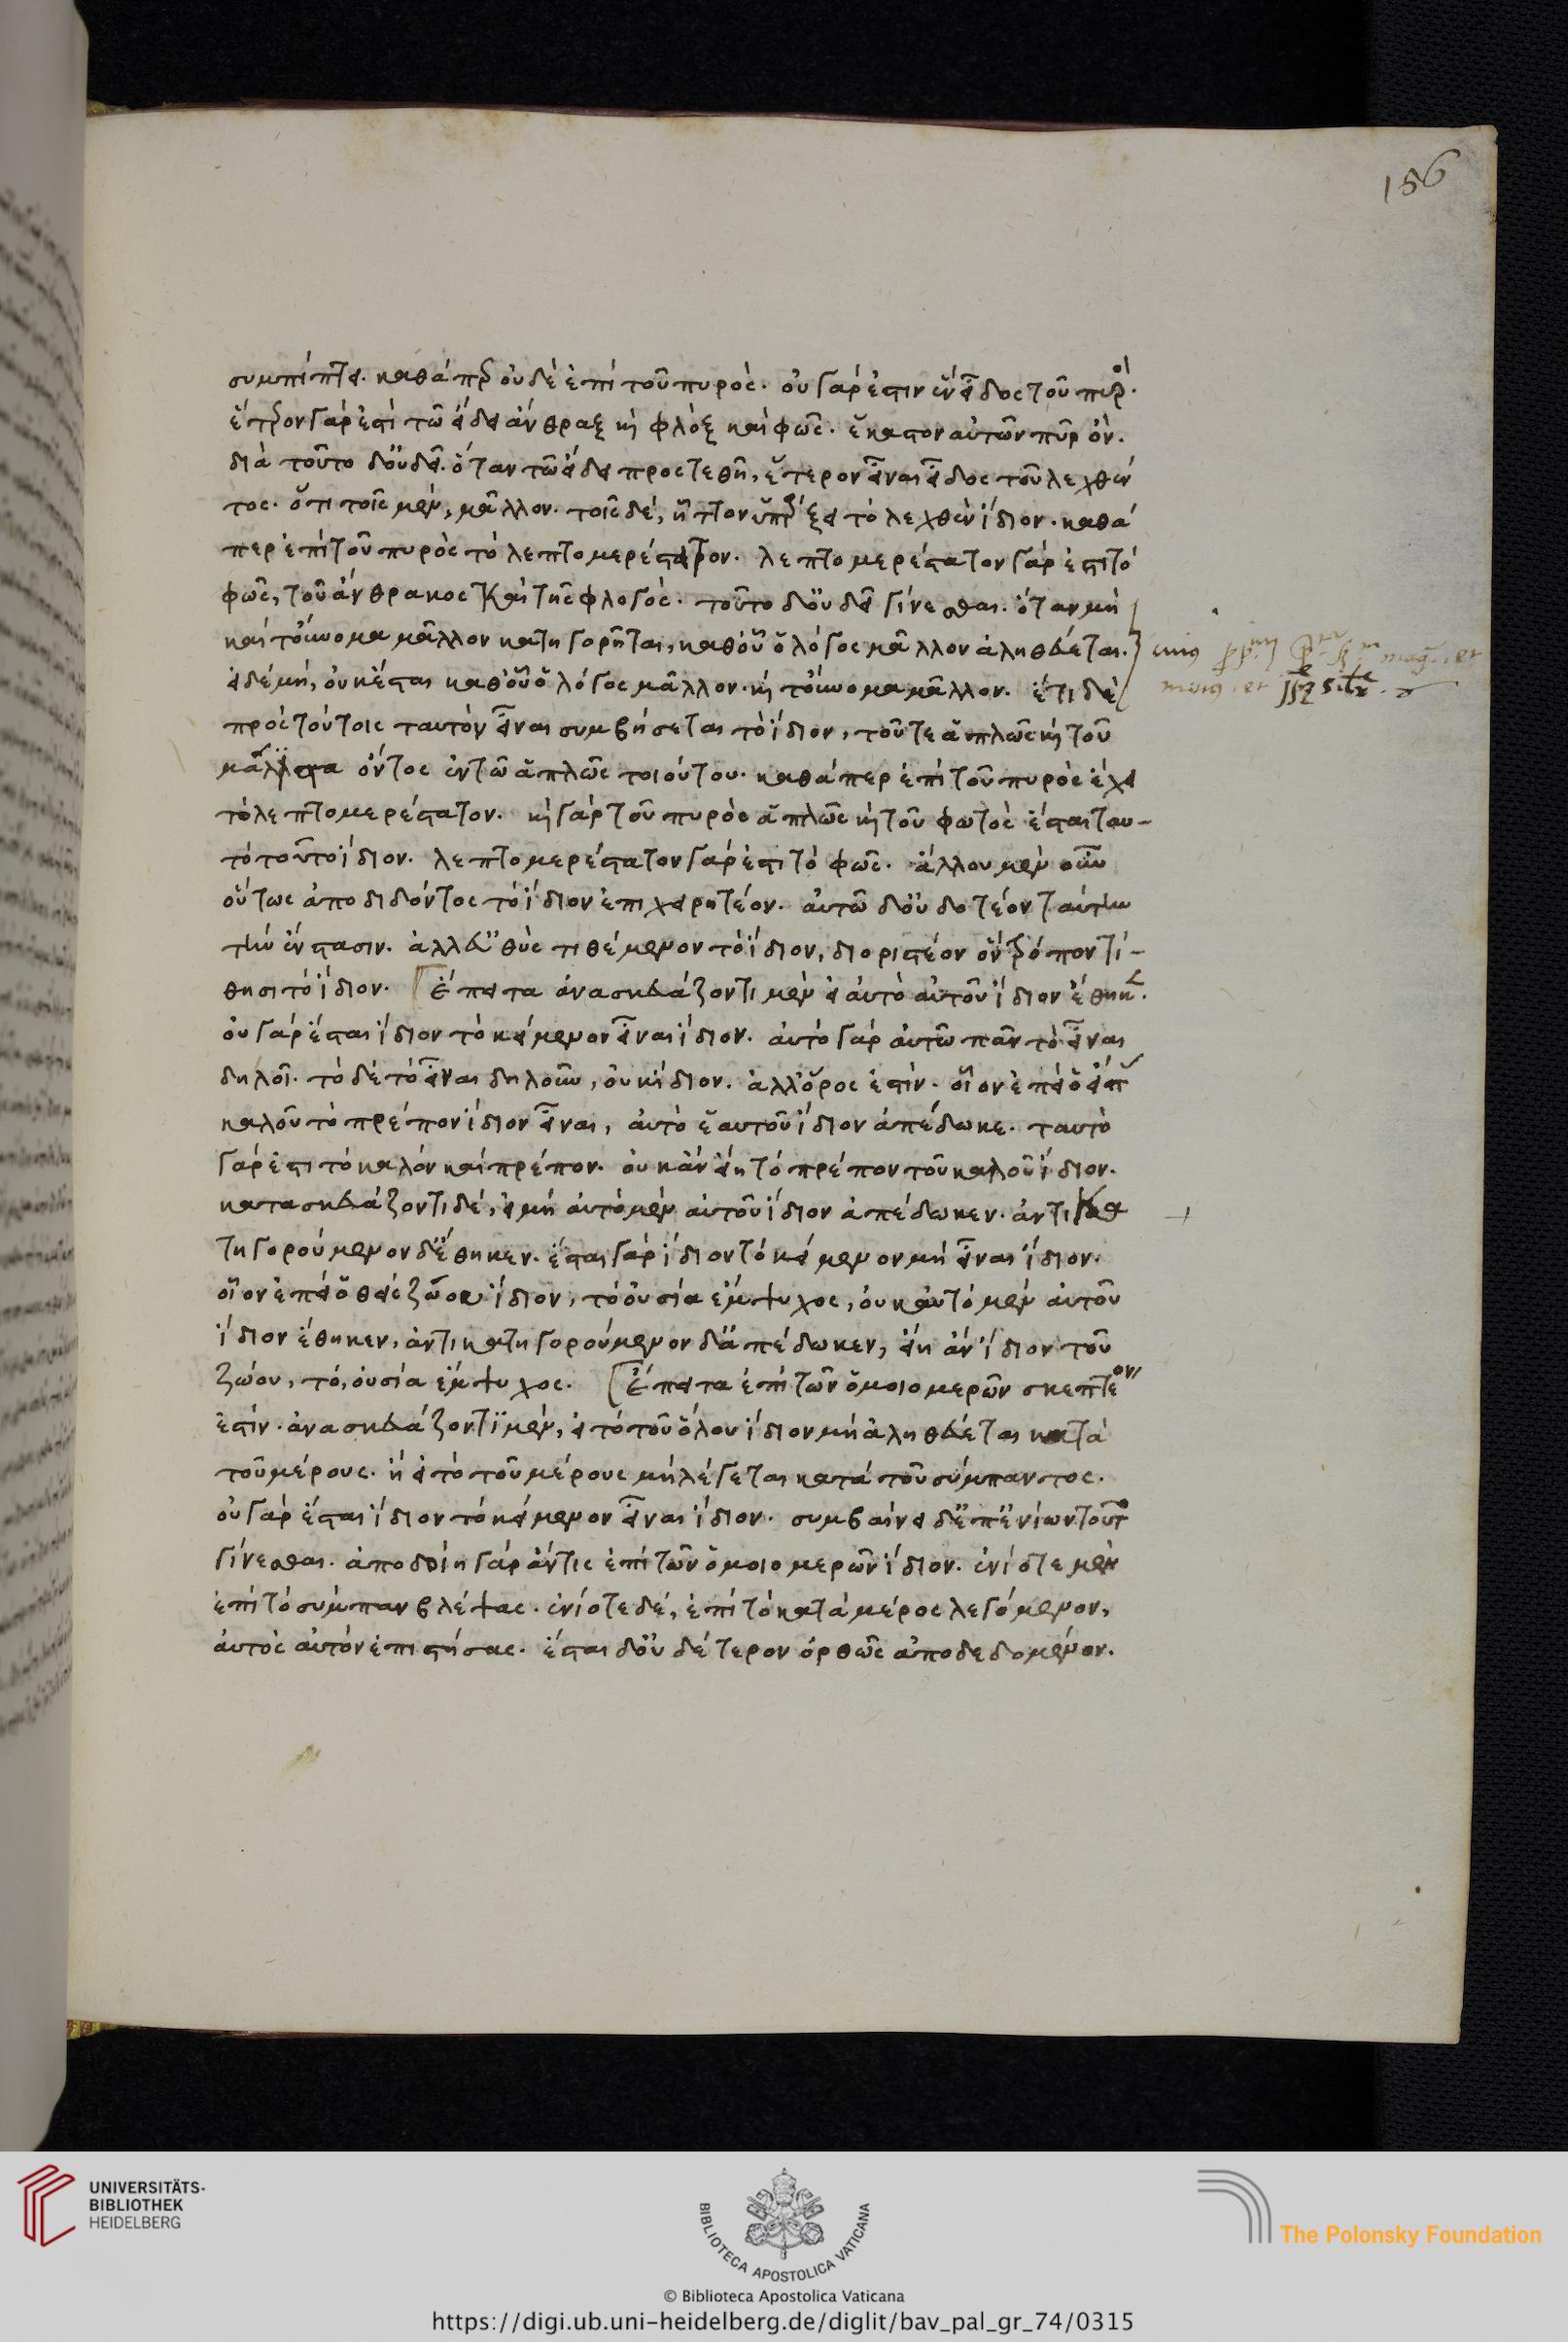 156
συμπίπτει. καθάπερ οὐδὲ ἐπὶ τοῦ πυρὸς. οὐ γάρ ἐστιν ἓν εἶδος τοῦ πυρός.
ἕτερον γάρ ἐστι τῶ εἴδει ἄνθραξ καὶ φλὸξ καὶ φῶς. ἕκαστον αὐτῶν πῦρ ὄν.
διὰ τοῦτο δ' οὐ δεῖ. ὅταν τῶ εἴδει προστεθῆ, ἕτερον εἶναι εἶδος τοῦ λεχθέν
τος. ὅτι τοῖς μὲν, μᾶλλον. τοῖς δέ, ἧττον ὑπάρξει τὸ λεχθὲν ἴδιον. καθά
περ ἐπὶ τοῦ πυρὸς τὸ λεπτομερέστατον. λεπτομερέστατον γάρ ἐστι τὸ
φῶς, τοῦ ἄνθρακος καὶ τῆς φλογὸς. τοῦτο δ' οὐ δεῖ γίνεσθαι. ὅταν μὴ
καὶ τοὔνομα μᾶλλον κατηγορῆται, καθ' οὗ ὁ λόγος μᾶλλον ἀληθεύεται.
εἰ δὲ μή, οὐκ ἔσται καθ' οὗ ὁ λόγος μᾶλλον. καὶ τοὔνομα μᾶλλον. ἔτι δὲ
πρὸς τούτοις ταυτὸν εἶναι συμβήσεται τὸ ἴδιον, τοῦ τε ἁπλῶς καὶ τοῦ
μάλιστα ὄντος ἐν τῶ ἁπλῶς τοιούτου. καθάπερ ἐπὶ τοῦ πυρὸς ἔχει
τὸ λεπτομερέστατον. καὶ γὰρ τοῦ πυρὸς ἁπλῶς καὶ τοῦ φωτὸς ἔσται ταυ-
τὸ τοῦτο ἴδιον. λεπτομερέστατον γάρ ἐστι τὸ φῶς. ἄλλου μὲν οὖν
οὕτως ἀποδιδόντος τὸ ἴδιον ἐπιχειρητέον. αὐτῶ δ' οὐ δοτέον ταύτην
τὴν ἔνστασιν. ἀλλ' εὐθὺς τιθέμενον τὸ ἴδιον, διοριστέον ὃν τρόπον τί-
θησι τὸ ἴδιον. [ἔπειτα ἀνασκευάζοντι μὲν εἰ αὐτὸ αὐτοῦ ἴδιον ἔθηκεν.
οὐ γὰρ ἔσται ἴδιον τὸ κείμενον εἶναι ἴδιον. αὐτὸ γὰρ αὐτῶ πᾶν τὸ εἶναι
δηλοῖ. τὸ δὲ τὸ εἶναι δηλοῦν, οὐκ ἴδιον. ἀλλ' ὅρος ἐστίν. οἷον ἐπεὶ ὁ εἴπας
καλοῦ τὸ πρέπον ἴδιον εἶναι, αὐτὸ ἑαυτοῦ ἴδιον ἀπέδωκε. ταυτὸ
γάρ ἐστι τὸ καλὸν καὶ πρέπον. οὐκ ἂν εἴη τὸ πρέπον τοῦ καλοῦ ἴδιον.
κατασκευάζοντι δέ, εἰ μὴ αὐτὸ μὲν αὐτοῦ ἴδιον ἀπέδωκεν. ἀντικα
τηγορούμενον δ' ἔθηκεν. ἔσται γὰρ ἴδιον τὸ κείμενον μὴ εἶναι ἴδιον.
οἷον ἐπεὶ ὁ θεὶς ζώου ἴδιον, τὸ οὐσία ἔμψυχος, οὐκ αὐτὸ μὲν αὐτοῦ
ἴδιον ἔθηκεν, ἀντικατηγορούμενον δ' ἀπέδωκεν, εἴη ἂν ἴδιον τοῦ
ζώου, τὸ, οὐσία ἔμψυχος. [ἔπειτα ἐπὶ τῶν ὁμοιομερῶν σκεπτέον
ἐστίν. ἀνασκευάζοντι μὲν, εἰ τὸ τοῦ ὅλου ἴδιον μὴ ἀληθεύεται κατὰ
τοῦ μέρους. ἢ εἰ τὸ τοῦ μέρους μὴ λέγεται κατὰ τοῦ σύμπαντος.
οὐ γὰρ ἔσται ἴδιον τὸ κείμενον εἶναι ἴδιον. συμβαίνει δ' ἐπ' ἐνίων τοῦτο
γίνεσθαι. ἀποδοίη γὰρ ἄν τις ἐπὶ τῶν ὁμοιομερῶν ἴδιον. ἐνίοτε μὲν
ἐπὶ τὸ σύμπαν βλέψας. ἐνίοτε δέ, ἐπὶ τὸ κατὰ μέρος λεγόμενον,
αὐτὸς αὐτὸν ἐπιστήσας. ἔσται δ' οὐδέτερον ὀρθῶς ἀποδεδομένον.
UNIVERSITÄTS-
BIBLIOTHEK
HEIDELBERG
BIBLIOTECA APOSTOLICA VATICANA
The Polonsky Foundation
© Biblioteca Apostolica Vaticana
https://digi.ub.uni-heidelberg.de/diglit/bav_pal_gr_74/0315